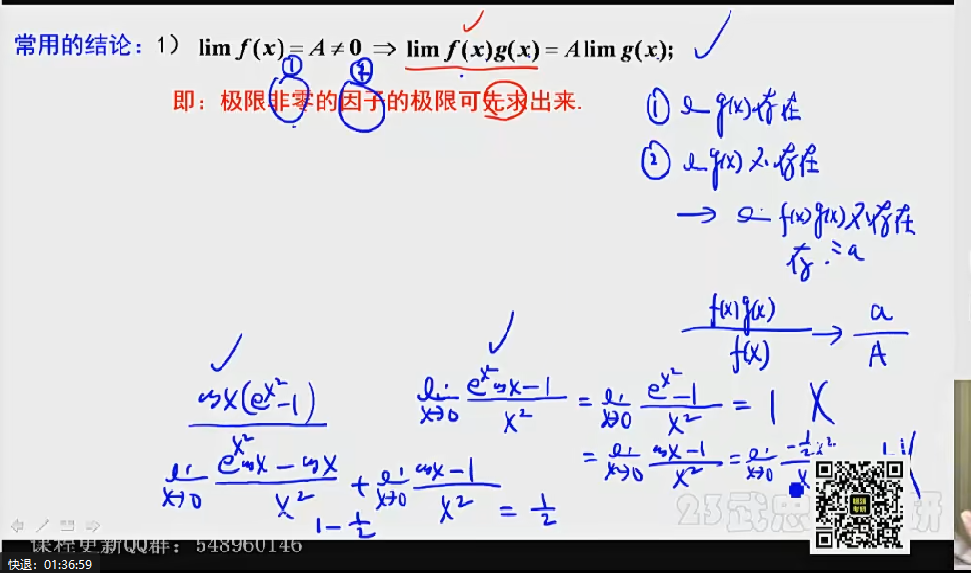 常用的结论：1） lim f(x) = A ≠ 0 ⇒ lim f(x)g(x) = A lim g(x);
① ②
即：极限非零的因子的极限可先求出来.
① lim g(x) 存在
② lim g(x) 不存在
→ lim f(x)g(x) 不存在
存. = a
f(x)g(x) / f(x) → a / A
cosx(e^{x^2}-1) / x^2
lim x→0 (e^{x^2}cosx-1) / x^2 = lim x→0 (e^{x^2}-1) / x^2 = 1 X
= lim x→0 (cosx-1) / x^2 = lim x→0 -½x^2 / x
lim x→0 (e^{x^2}cosx - cosx) / x^2 + lim x→0 (cosx-1) / x^2 = ½
1 - ½
23武忠 研
课程更新QQ群：548960146
快退：01:36:59